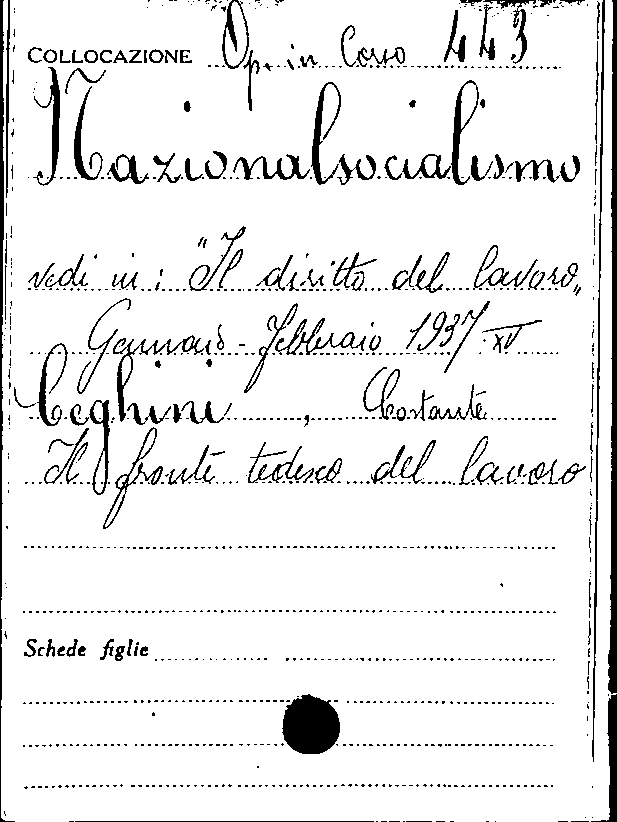 COLLOCAZIONE Op. in Corso 443
Nazionalsocialismo
vedi in: "Il diritto del lavoro„
Gennaio - Febbraio 1937 XV
Ceghini, Costante
Il fronte tedesco del lavoro
Schede figlie